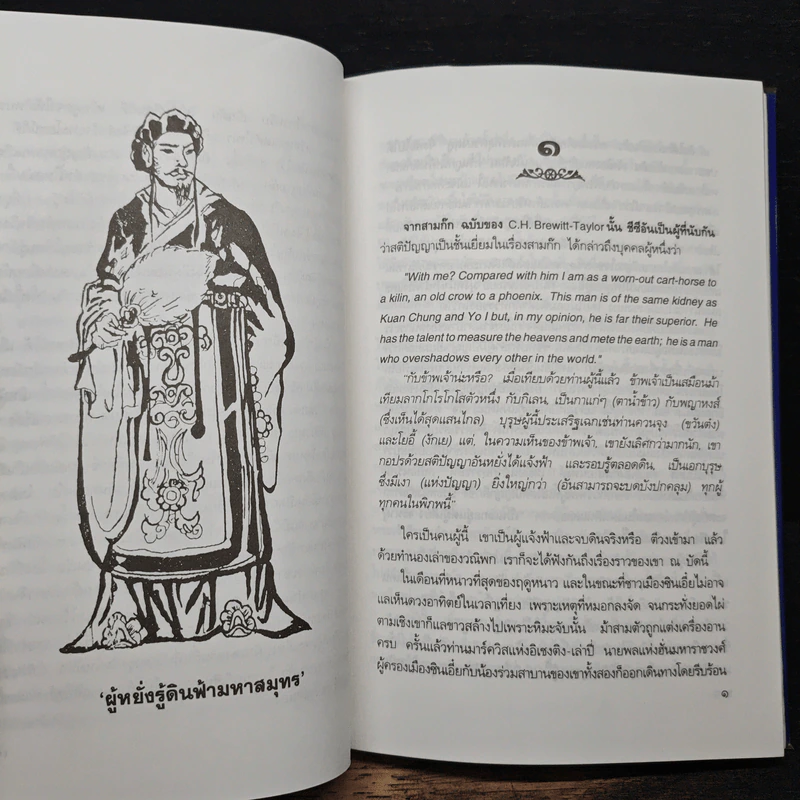 'ผู้หยั่งรู้ดินฟ้ามหาสมุทร'
๑
จากสามก๊ก ฉบับของ C.H. Brewitt-Taylor นั้น ชีซีอันเป็นผู้ที่นับกัน
ว่าสติปัญญาเป็นชั้นเยี่ยมในเรื่องสามก๊ก ได้กล่าวถึงบุคคลผู้หนึ่งว่า
"With me? Compared with him I am as a worn-out cart-horse to
a kilin, an old crow to a phoenix. This man is of the same kidney as
Kuan Chung and Yo I but, in my opinion, he is far their superior. He
has the talent to measure the heavens and mete the earth; he is a man
who overshadows every other in the world."
"กับข้าพเจ้าน่ะหรือ? เมื่อเทียบด้วยท่านผู้นี้แล้ว ข้าพเจ้าเป็นเสมือนม้า
เทียมลากโกโรโกโสตัวหนึ่ง กับกิเลน, เป็นกาแก่ๆ (ตาน้ำข้าว) กับพญาหงส์
(ซึ่งเห็นได้สุดแสนไกล) บุรุษผู้นี้ประเสริฐเฉกเช่นท่านควนจุง (ขวันต๋ง)
และโยอี้ (งักเย) แต่, ในความเห็นของข้าพเจ้า, เขายังเลิศกว่ามากนัก, เขา
กอปรด้วยสติปัญญาอันหยั่งได้แจ้งฟ้า และรอบรู้ตลอดดิน, เป็นเอกบุรุษ
ซึ่งมีเงา (แห่งปัญญา) ยิ่งใหญ่กว่า (อันสามารถจะบดบังปกคลุม) ทุกผู้
ทุกคนในพิภพนี้"
ใครเป็นคนผู้นี้ เขาเป็นผู้แจ้งฟ้าและจบดินจริงหรือ ตีวงเข้ามา แล้ว
ด้วยทำนองเล่าของวณิพก เราก็จะได้ฟังกันถึงเรื่องราวของเขา ณ บัดนี้
ในเดือนที่หนาวที่สุดของฤดูหนาว และในขณะที่ชาวเมืองซินเอี๋ยไม่อาจ
แลเห็นดวงอาทิตย์ในเวลาเที่ยง เพราะเหตุที่หมอกลงจัด จนกระทั่งยอดไผ่
ตามเชิงเขาก็แลขาวสล้างไปเพราะหิมะจับนั้น ม้าสามตัวถูกแต่งเครื่องอาน
ครบ ครั้นแล้วท่านมาร์ควิสแห่งอิเซงติง-เล่าปี่ นายพลแห่งฮั่นมหาราชวงศ์
ผู้ครองเมืองซินเอี๋ยกับน้องร่วมสาบานของเขาทั้งสองก็ออกเดินทางโดยรีบร้อน
๑